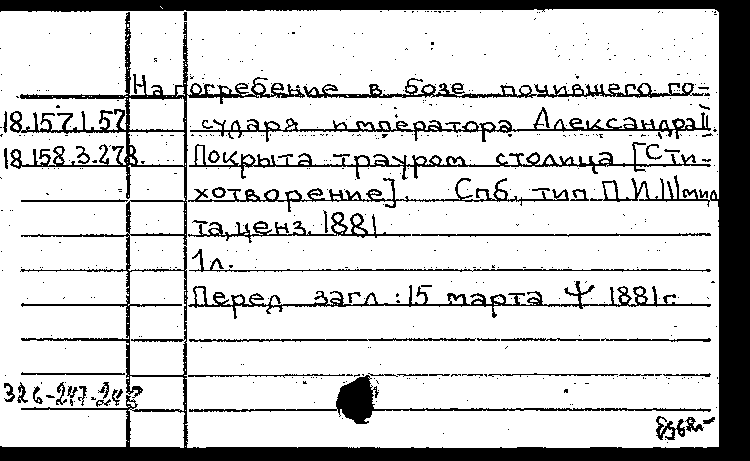 На погребение в бозе почившего го-
18.157.1.57 сударя императора Александра II.
18.158.3.278. Покрыта трауром столица [Сти-
хотворение]. Спб., тип П.И.Шмид
та, ценз. 1881.
1л.
Перед загл.: 15 марта Ψ 1881г.
326-247-248